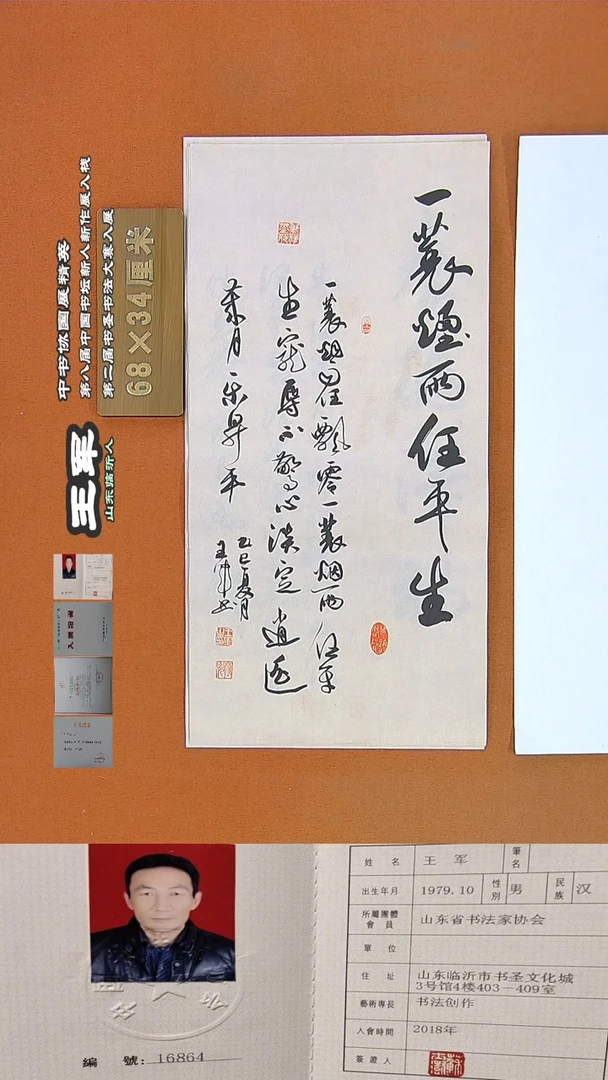 中书协国展精英
第八届中国书坛新人新作展入展
第二届书圣书法大赛入展
68×34厘米
王军
山东临沂人
一蓑煙雨任平生
一蓑烟任飘零一蓑烟雨任平
生宠辱不惊心淡定逍遥
月乐昇平
乙巳夏月
王军书
姓 名 王 军 筆名
出生年月 1979.10 性別 男 民族 汉
所屬團體會 員 山东省书法家协会
單 位
住 址 山东临沂市书圣文化城
3号馆4楼403—409室
藝術專長 书法创作
入會時間 2018年
簽 證 人
編 號: 16864